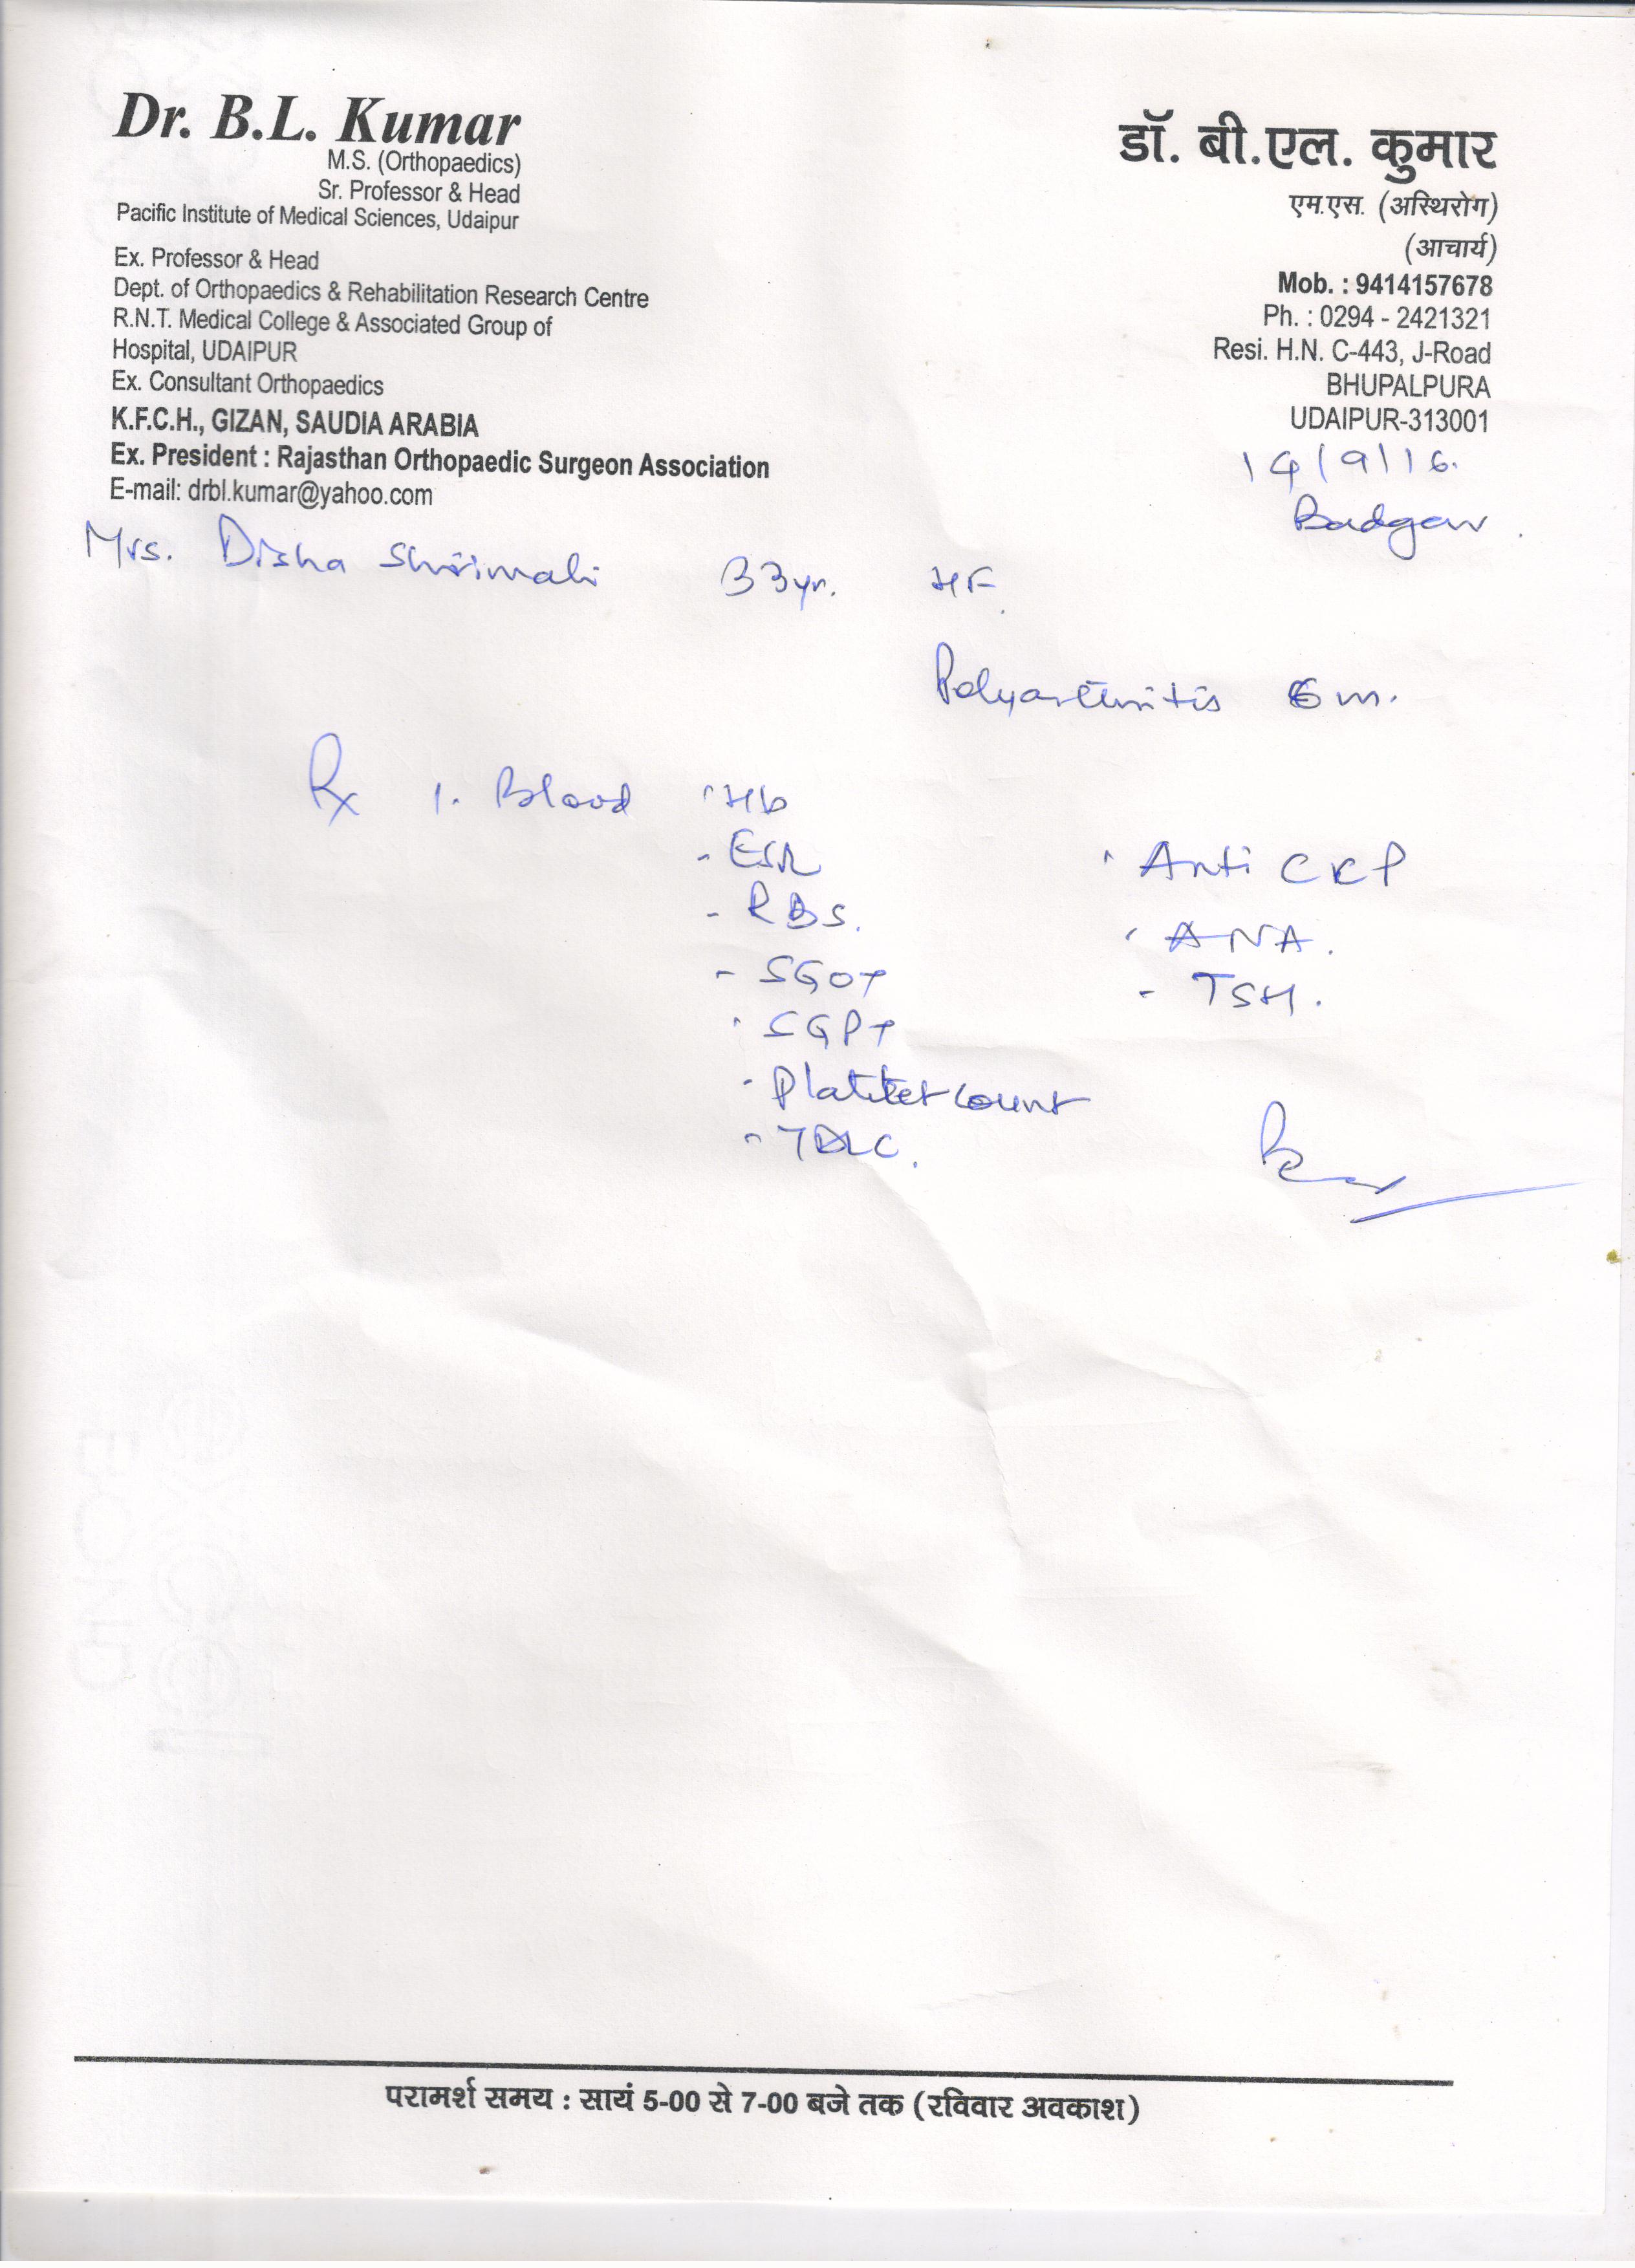 Dr. B.L. Kumar
M.S. (Orthopaedics)
Sr. Professor & Head
Pacific Institute of Medical Sciences, Udaipur
Ex. Professor & Head
Dept. of Orthopaedics & Rehabilitation Research Centre
R.N.T. Medical College & Associated Group of
Hospital, UDAIPUR
Ex. Consultant Orthopaedics
K.F.C.H., GIZAN, SAUDIA ARABIA
Ex. President : Rajasthan Orthopaedic Surgeon Association
E-mail: drbl.kumar@yahoo.com
डॉ. बी.एल. कुमार
एम.एस. (अस्थिरोग)
(आचार्य)
Mob. : 9414157678
Ph. : 0294 - 2421321
Resi. H.N. C-443, J-Road
BHUPALPURA
UDAIPUR-313001
14/9/16.
Badgaw.
Mrs. Disha Shrimali 33yr. HF
Polyarthritis 6 m.
Rx 1. Blood - Hb
- ESR
- RBS.
- SGOT
- SGPT
- Platelet count
- TDLC.
- Anti CCP
- ANA.
- TSH.
परामर्श समय : सायं 5-00 से 7-00 बजे तक (रविवार अवकाश)